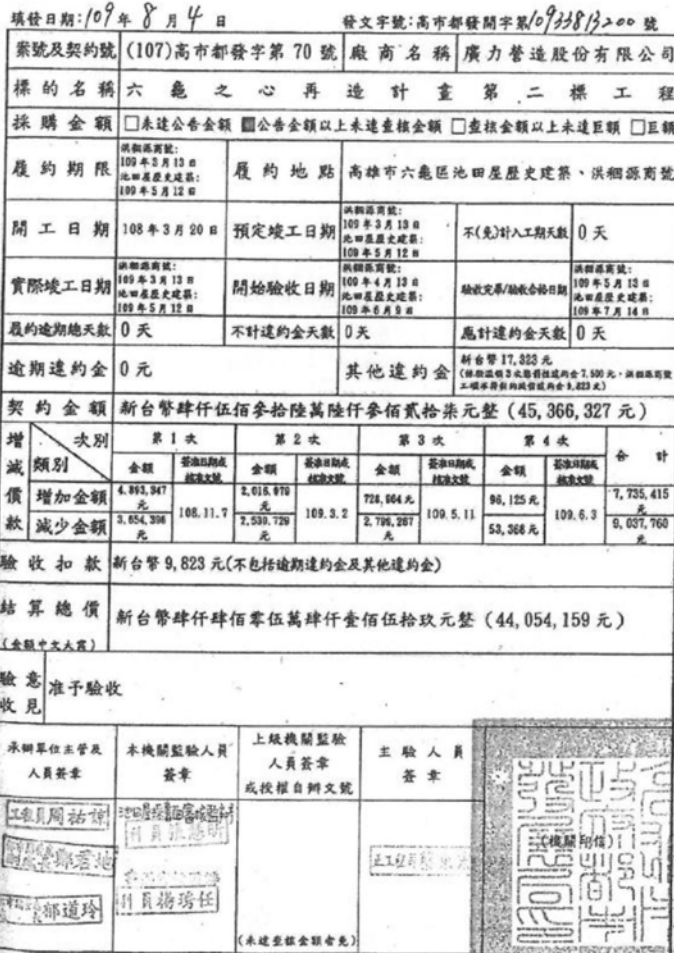 填發日期:109年8月4日 發文字號:高市都發開字第10933813200號
案號及契約號 (107)高市都發字第70號 廠商名稱 廣力營造股份有限公司
標的名稱 六龜之心再造計畫第二標工程
採購金額 □未達公告金額 ■公告金額以上未達查核金額 □查核金額以上未達巨額 □巨額
履約期限 洪稛源商號: 109年3月13日 池田屋歷史建築: 109年5月12日 履約地點 高雄市六龜區池田屋歷史建築、洪稛源商號
開工日期 108年3月20日 預定竣工日期 洪稛源商號: 109年3月13日 池田屋歷史建築: 109年5月12日 不(免)計入工期天數 0天
實際竣工日期 洪稛源商號: 109年3月13日 池田屋歷史建築: 109年5月12日 開始驗收日期 洪稛源商號: 109年4月13日 池田屋歷史建築: 109年6月9日 驗收完畢/驗收合格日期 洪稛源商號: 109年5月13日 池田屋歷史建築: 109年7月14日
履約逾期總天數 0天 不計違約金天數 0天 應計違約金天數 0天
逾期違約金 0元 其他違約金 新台幣17,323元
契約金額 新台幣肆仟伍佰參拾陸萬陸仟參佰貳拾柒元整(45,366,327元)
增減價款 次別 類別 第1次 第2次 第3次 第4次 合計
金額 簽准日期或核准文號 金額 簽准日期或核准文號 金額 簽准日期或核准文號 金額 簽准日期或核准文號
增加金額 4,893,347元 108.11.7 2,016,979元 109.3.2 728,964元 109.5.11 96,125元 109.6.3 7,735,415元
減少金額 3,654,398元 2,539,729元 2,790,267元 53,366元 9,037,760元
驗收扣款 新台幣9,823元(不包括逾期違約金及其他違約金)
結算總價 新台幣肆仟肆佰零伍萬肆仟壹佰伍拾玖元整(44,054,159元)
(金額中文大寫)
驗收意見 准予驗收
承辦單位主管及人員簽章 本機關監驗人員簽章 上級機關監驗人員簽章或授權自辦文號 主驗人員簽章
工程員周祐
郁道玲
(未達查核金額者免)
(機關印信)